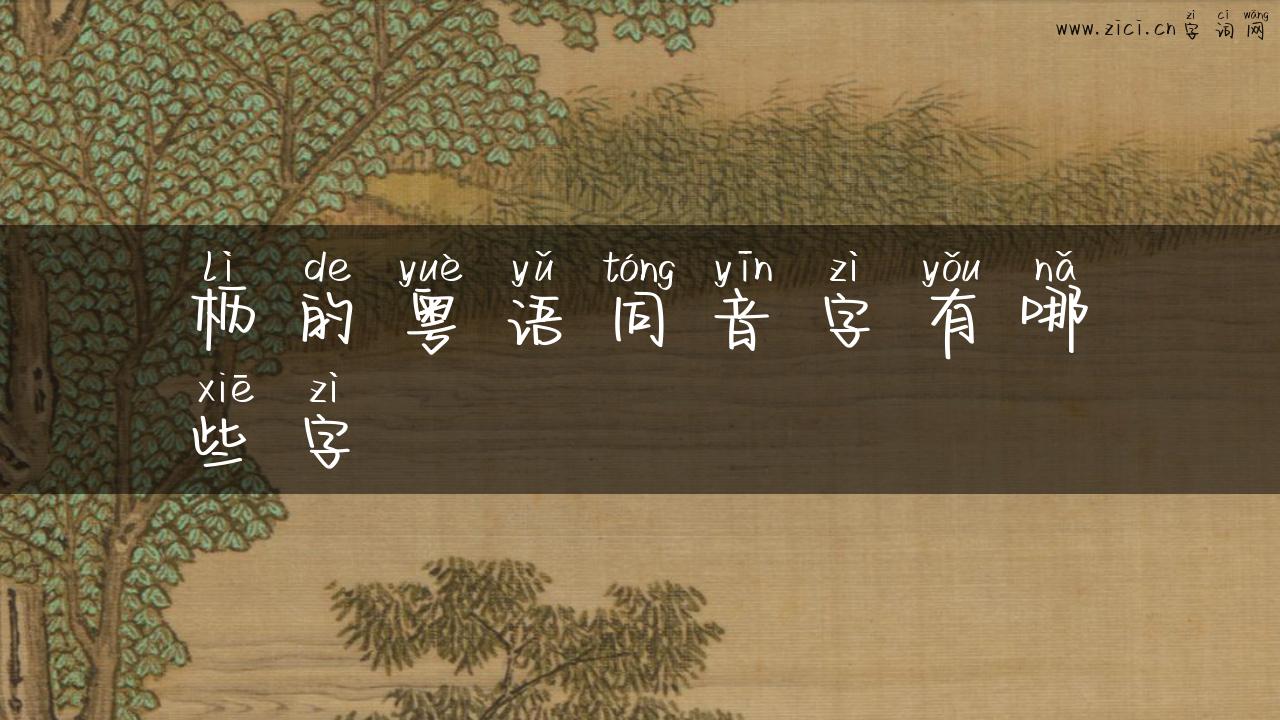 www.zici.cn zì cí wǎng
字词网
lì de yuè yǔ tóng yīn zì yǒu nǎ
枥的粤语同音字有哪
xiē zì
些字